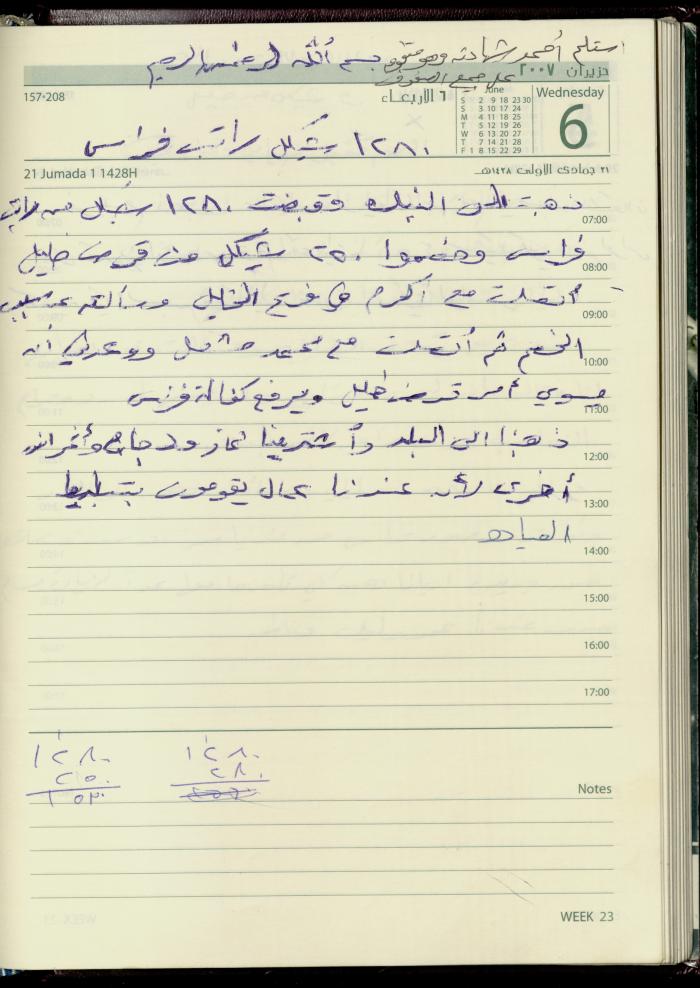 استلم أحمد شهادته وهو متفوق
على جميع الصفوف
بسم الله الرحمن الرحيم
حزيران ٢٠٠٧
157-208
٦ الأربعاء
June
S 2 9 16 23 30
S 3 10 17 24
M 4 11 18 25
T 5 12 19 26
W 6 13 20 27
T 7 14 21 28
F 1 8 15 22 29
Wednesday
6
١٢٨٠ شيكل راتب فراس
21 Jumada 1 1428H
٢١ جمادى الأولى ١٤٢٨هـ
ذهبت إلى البنك وقبضت ١٢٨٠ شيكل من راتب
07:00
فراس وخصموا ٢٥٠ شيكل من قرض خليل
08:00
أتصلت مع أكرم في فرع الخليل وسألته عن سبب
09:00
الخصم ثم أتصلت مع محمد مشعل ووعدني أن
10:00
يسوي أمر قرض خليل ويرفع كفالة فراس
11:00
ذهبنا إلى البلد وأشترينا غاز ودجاج وأغراض
12:00
أخرى لأن عندنا عمال يقومون بتبليط
13:00
14:00
15:00
16:00
17:00
١٢٨٠
٢٥٠
١٠٣٠
١٢٨٠
٢٨٠
Notes
WEEK 23